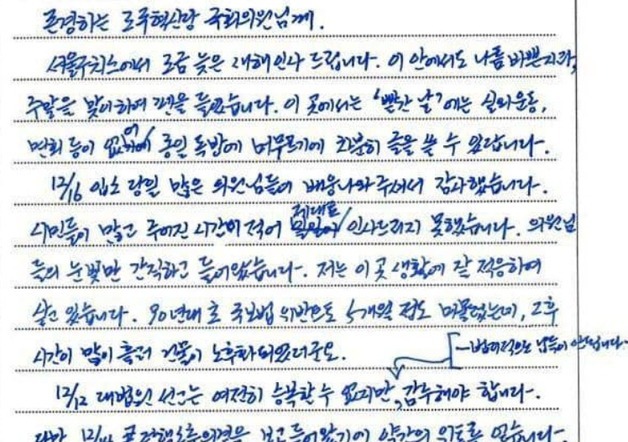 존경하는 조국혁신당 국회의원님께.
서울구치소에서 조금 늦은 새해인사 드립니다. 이 안에서도 나름 바쁜지라,
주말을 맞이하여 펜을 들었습니다. 이 곳에서는 '빨간 날'에는 실외운동,
면회 등이 없어 종일 독방에 머무르기에 차분히 글을 쓸 수 있답니다.
12/16 입소 당일 많은 의원님들이 배웅나와주셔서 감사했습니다.
시민들이 많고 주어진 시간이 적어 제대로 인사드리지 못했습니다. 의원님
들의 눈빛만 간직하고 들어왔습니다. 저는 이곳 생활에 잘 적응하여
살고 있습니다. 90년대 초 국보법 위반으로 5개월 정도 머물렀는데, 그후
시간이 많이 흘러 건물이 노후화되었더군요.
12/12 대법원 선고는 여전히 승복할 수 없지만, 감수해야 합니다.
다만, 12/4